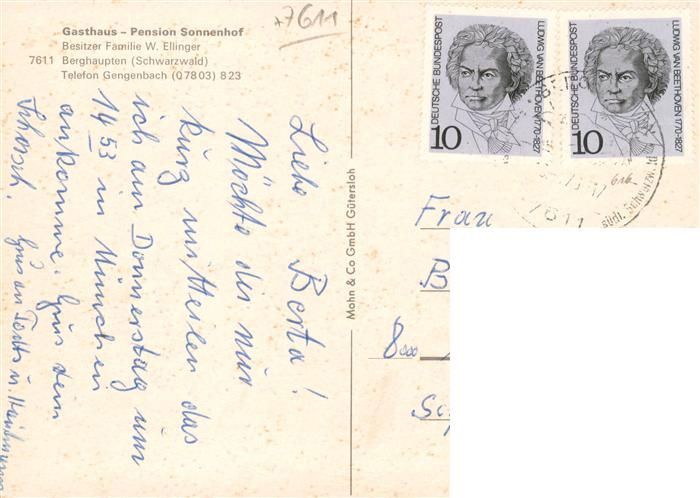 7611
Gasthaus – Pension Sonnenhof
Besitzer Familie W. Ellinger
7611 Berghaupten (Schwarzwald)
Telefon Gengenbach (07803) 823
Liebe Berta!
Möchte dir nur
kurz mitteilen das
ich am Donnerstag um
14 53 in München
ankomme. Gruss dein
Schorsch.
Mohn & Co GmbH Gütersloh
DEUTSCHE BUNDESPOST
LUDWIG VAN BEETHOVEN 1770-1827
10
DEUTSCHE BUNDESPOST
LUDWIG VAN BEETHOVEN 1770-1827
10
7611
Frau
B
8000